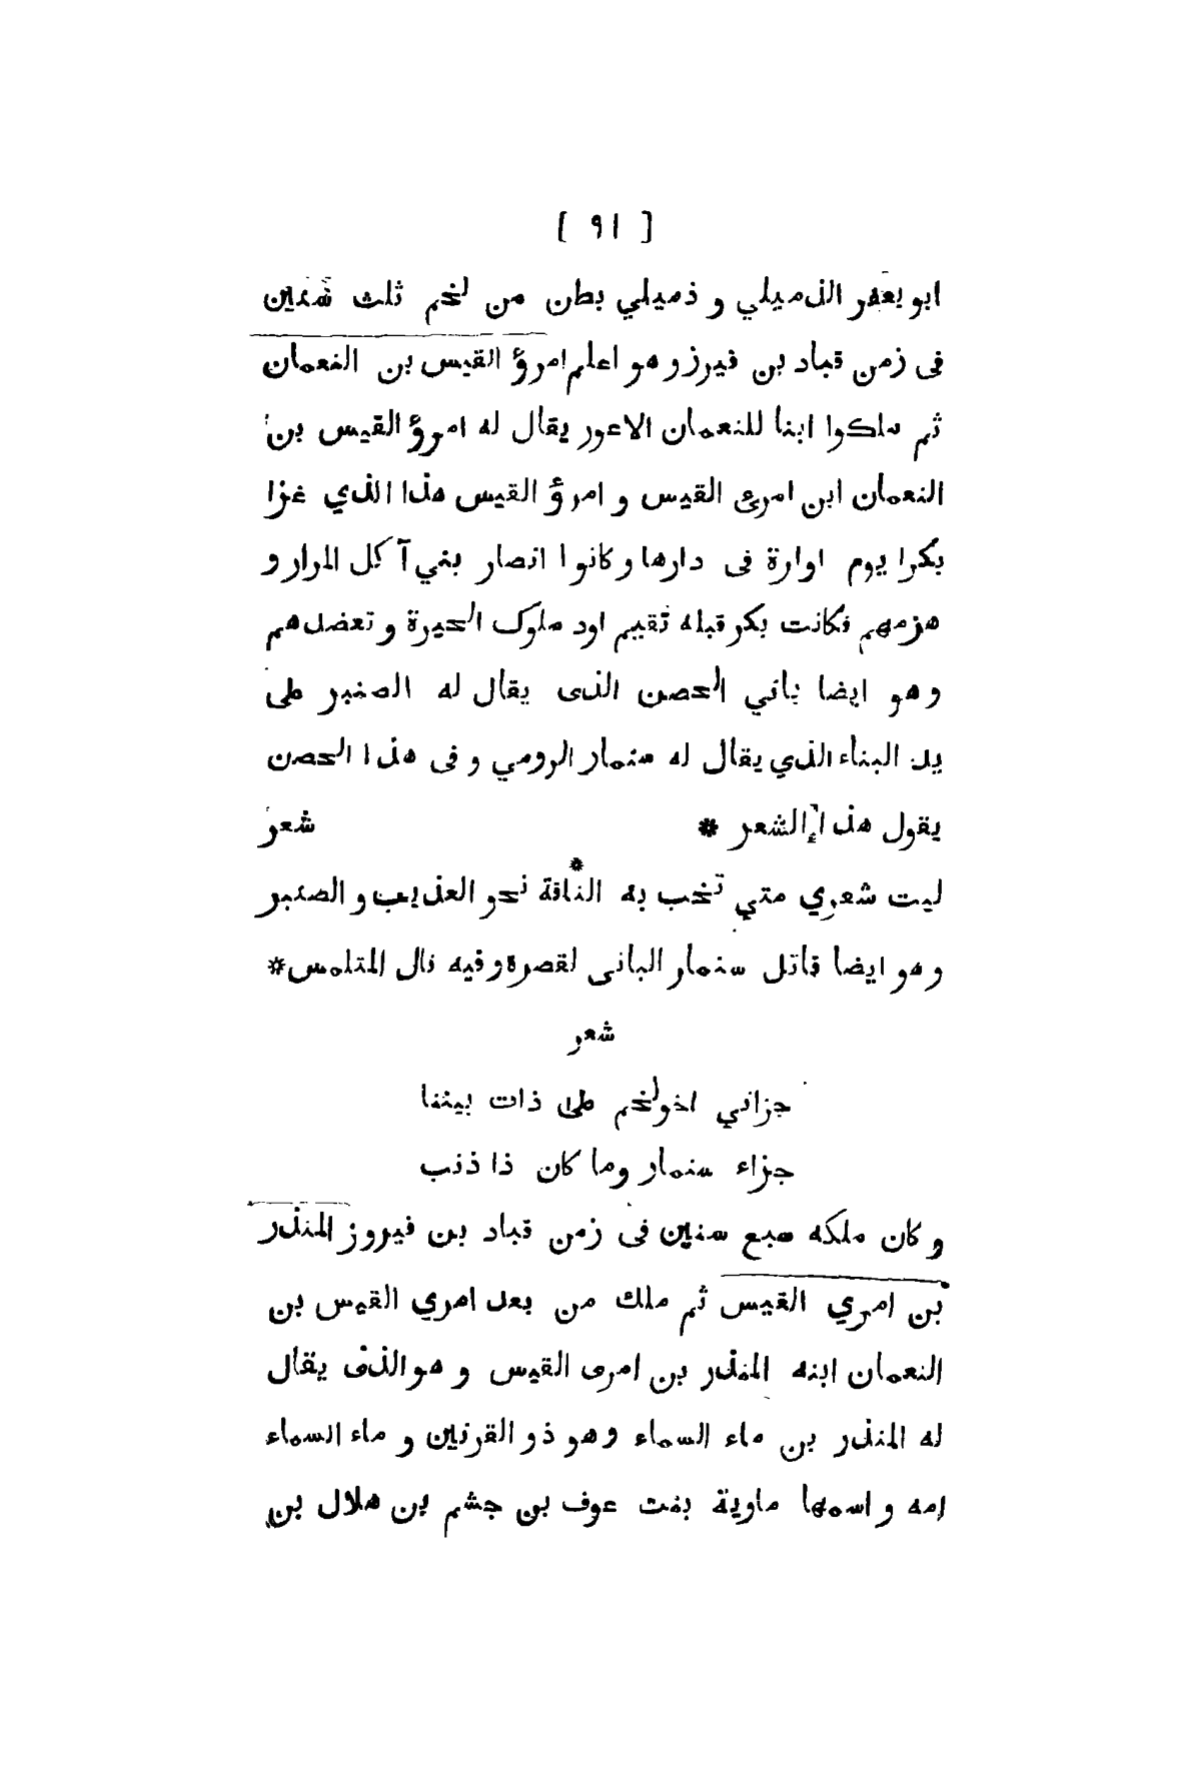 [ ٩١ ]
ابو يعفر الذميلي و ذميلي بطن من لخم ثلث سنين
فى زمن قباد بن فيرز وهو اعلم امرؤ القيس بن النعمان
ثم ملكوا ابنا للنعمان الاعور يقال له امرؤ القيس بن
النعمان ابن امرى القيس و امرؤ القيس هذا الذي غزا
بكرا يوم اوارة فى دارها وكانوا انصار بني آكل المرار و
هزمهم فكانت بكر قبله تقيم اود ملوك الحيرة و تعضدهم
وهو ايضا باني الحصن الذى يقال له الصنبر على
يد البناء الذي يقال له سنمار الرومي و فى هذا الحصن
يقول هذا الشعر * شعر
ليت شعري متي تخب به الناقة * نحو العذيب و الصنبر
وهو ايضا قاتل سنمار البانى لقصره وفيه قال المتلمس *
شعر
جزاني اخو لخم على ذات بيننا
جزاء سنمار وما كان ذا ذنب
و كان ملكه سبع سنين فى زمن قباد بن فيروز المنذر
بن امري القيس ثم ملك من بعد امري القيس بن
النعمان ابنه المنذر بن امرى القيس و هو الذى يقال
له المنذر بن ماء السماء وهو ذو القرنين و ماء السماء
امه و اسمها ماوية بنت عوف بن جشم بن هلال بن